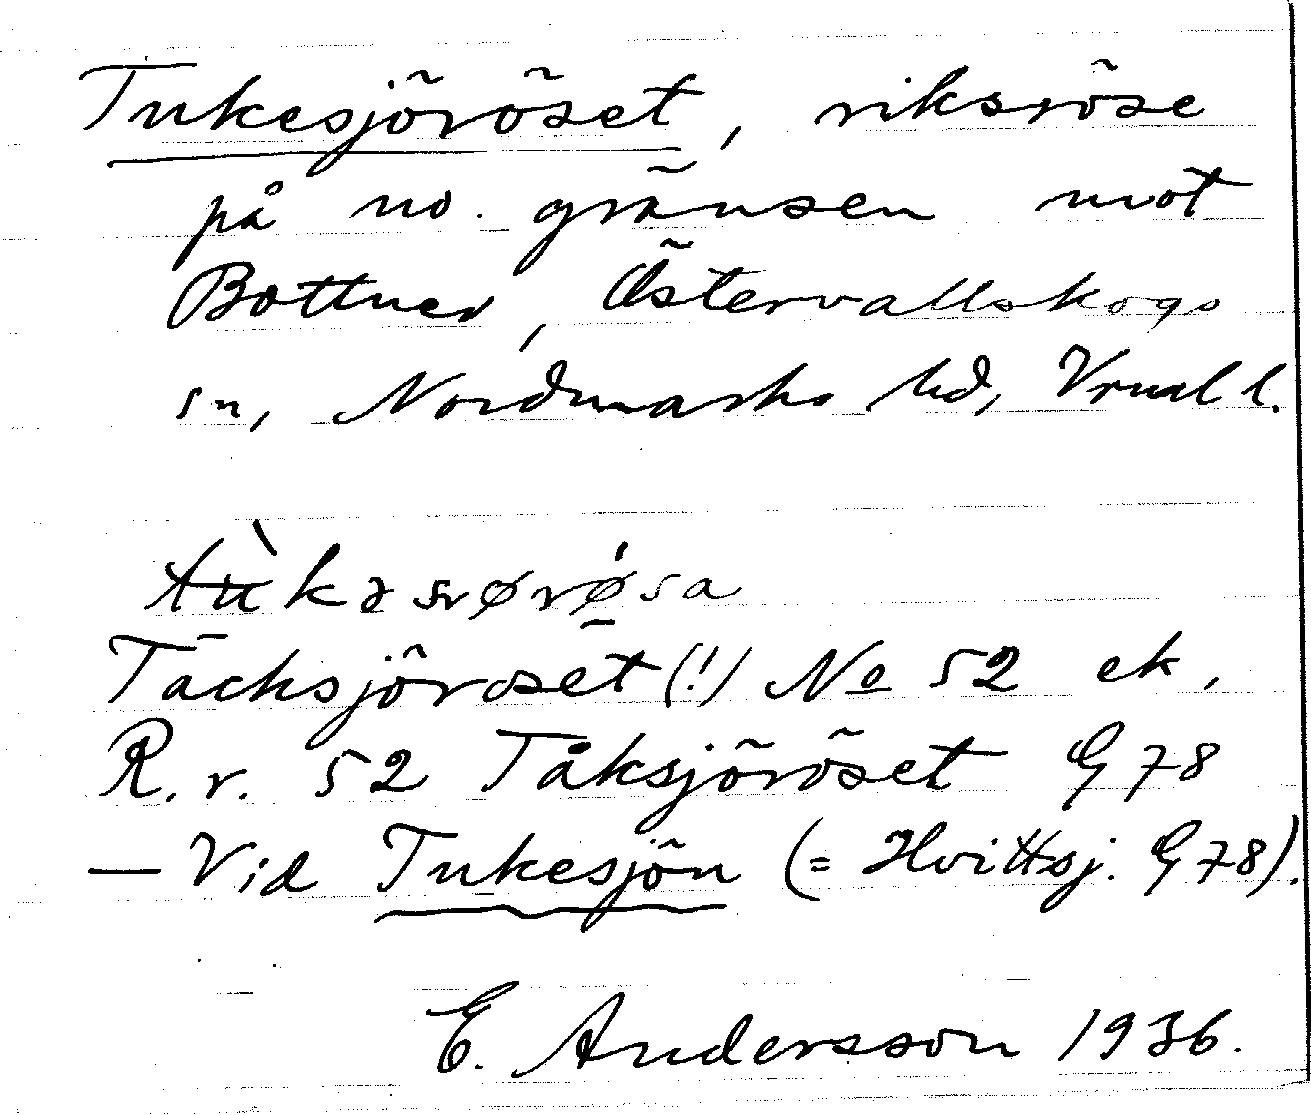 Tukesjöröset, riksröse
på no. gränsen mot
Bottner, Östervallskogs
sn, Nordmarks hd, Vrml l.
tʉ̀kəsrørǿsa
Täcksjöröset (!) No 52 ek,
R. r. 52 Tåksjöröset G 78
— Vid Tukesjön (= Hvittsj. G 78).
E. Andersson 1936.